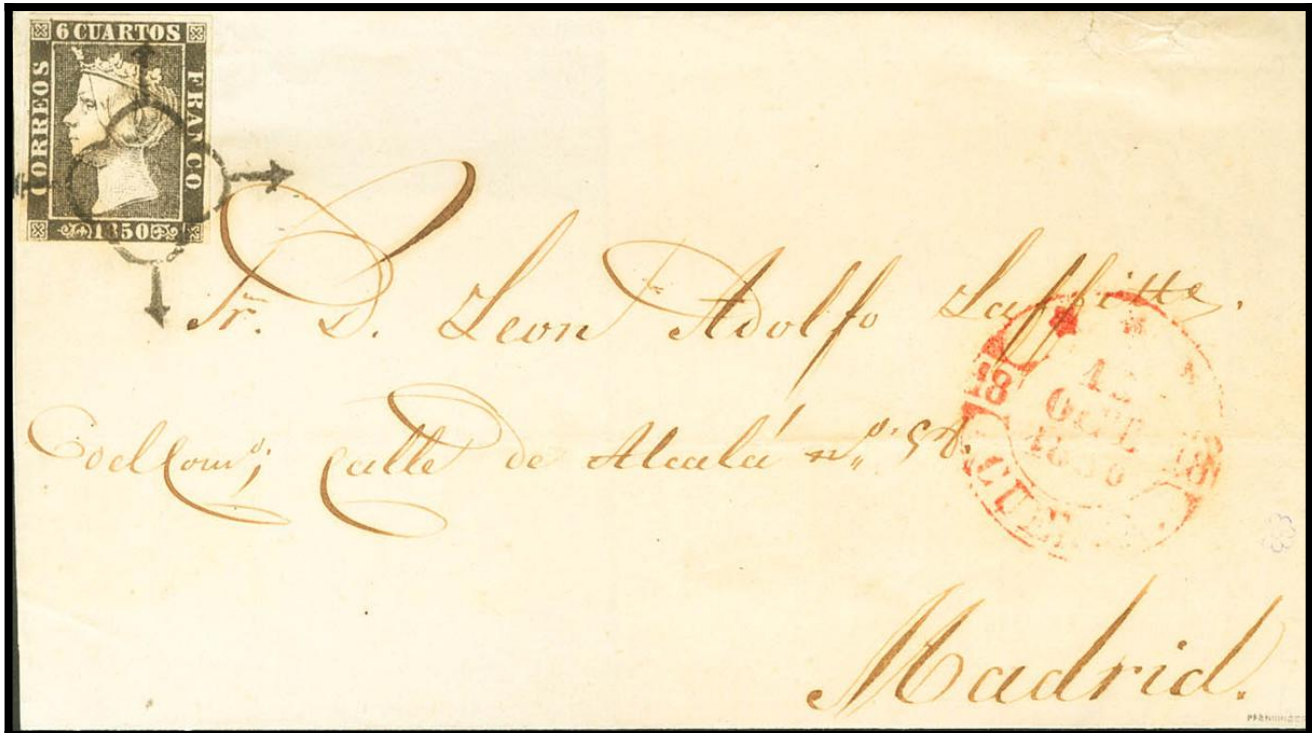 6 CUARTOS
CORREOS
FRANCO
1850
Sr. D. Leon Adolfo Laffitte.
calle de Alcalá nº
18 18
OCT
1850
CUE
Madrid.